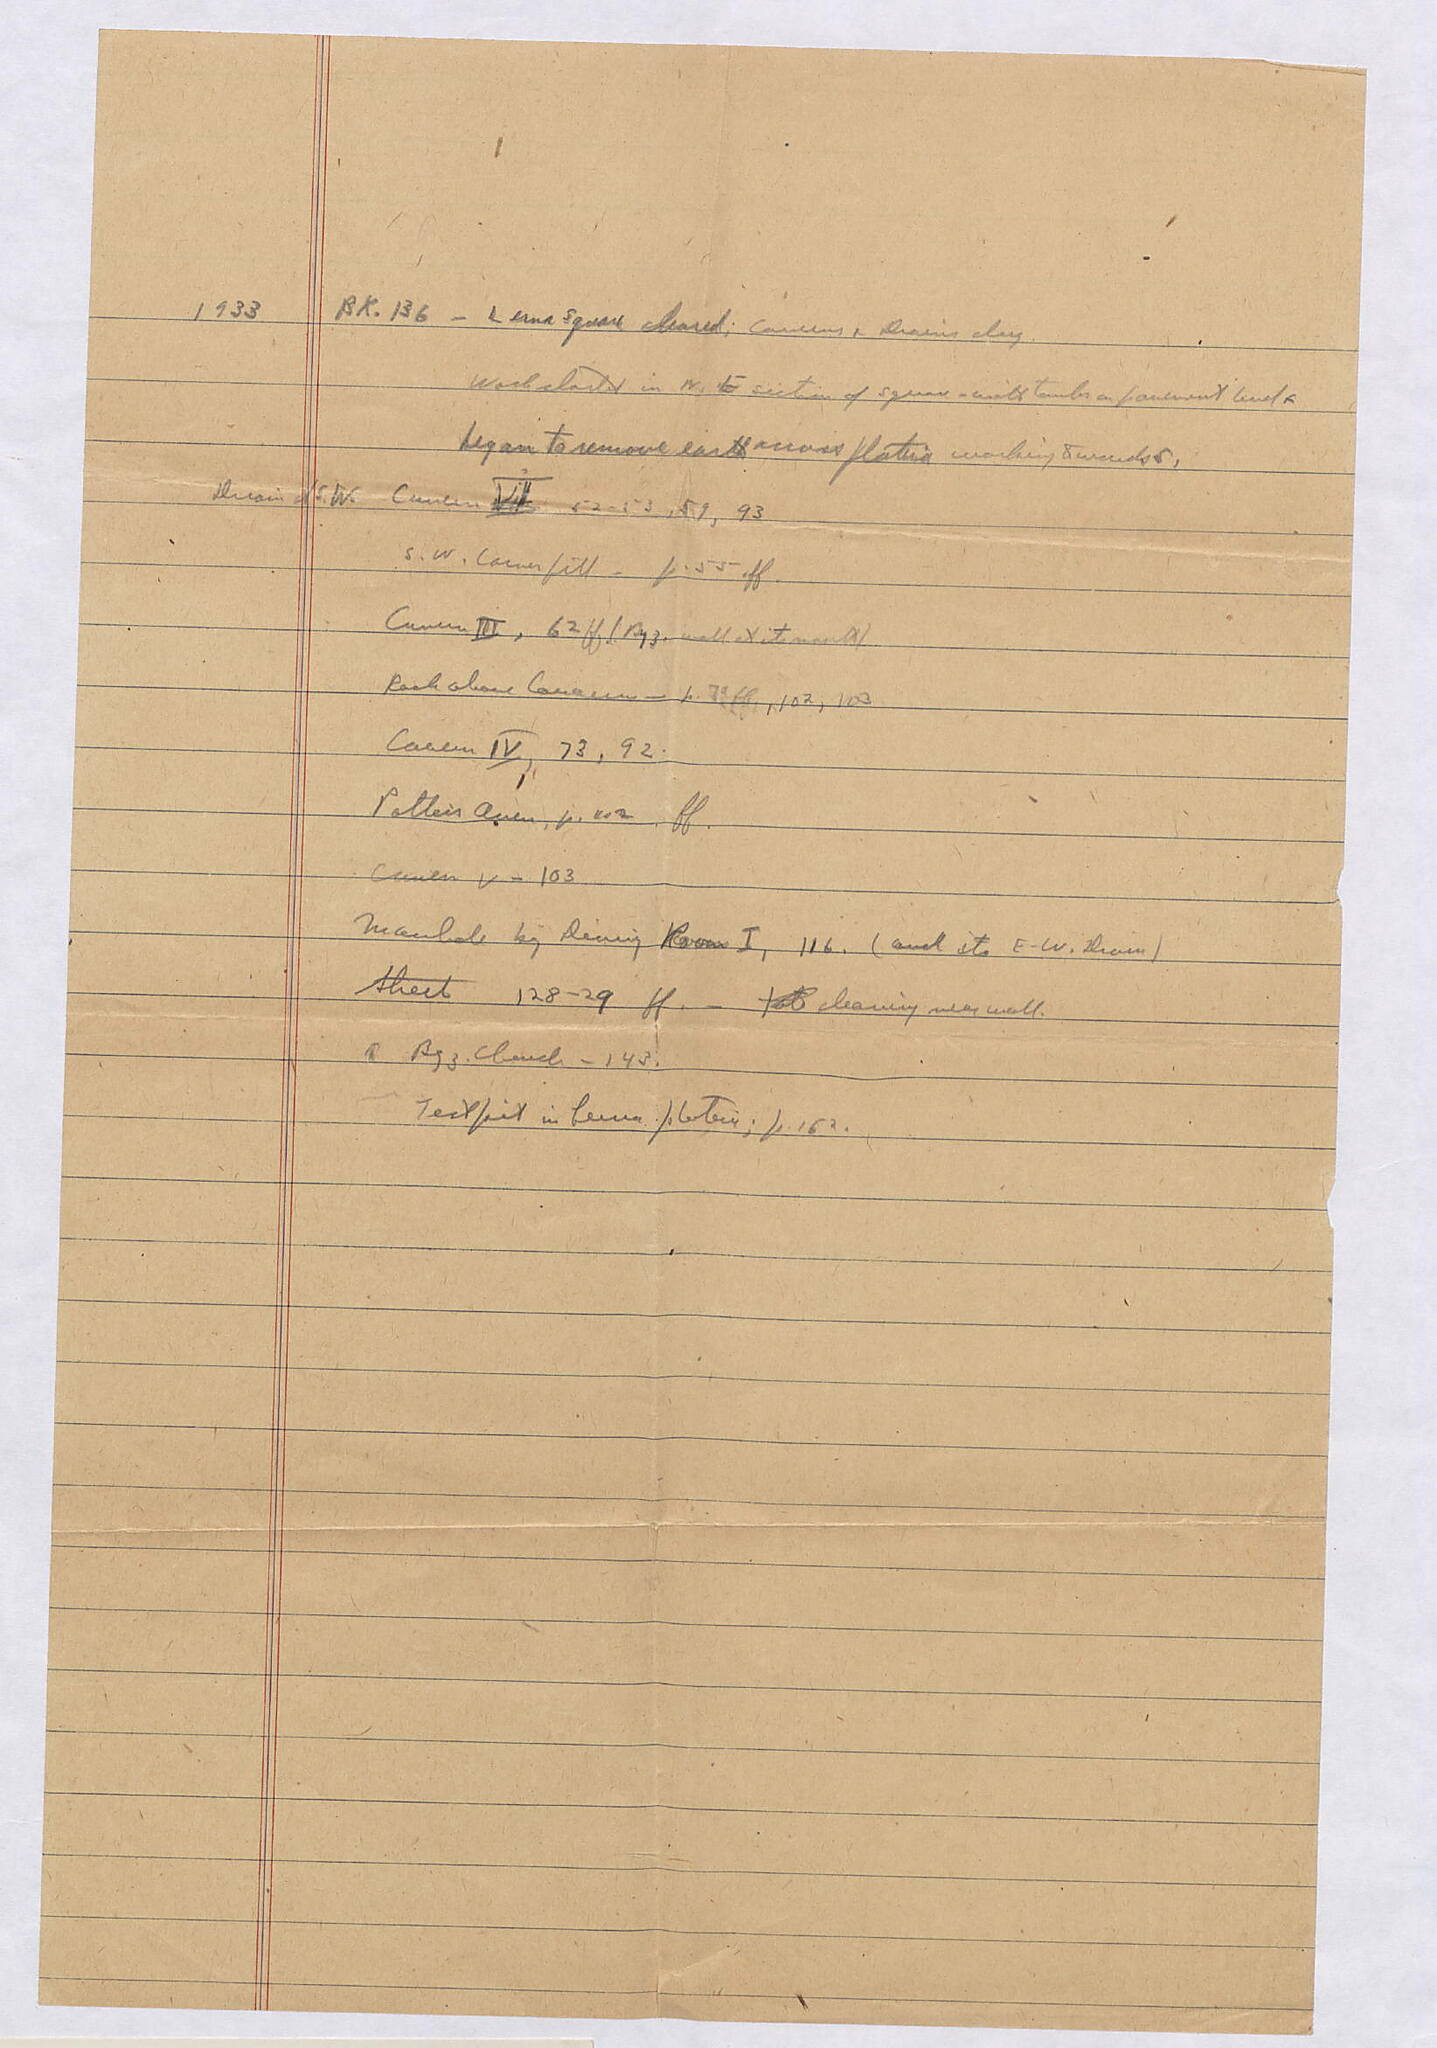 1933 BK. 136 – Lerna Square cleared; Caverns & Drains dug.
Work started in N. E section of square – with tombs on pavement level &
began to remove earth across plateia working towards S.
Drain of S.W. Cavern VII 52–53, 59, 93
S. W. Corner fill – p. 55 ff.
Cavern III, 62 ff (Byz. wall at its mouth)
Rock above Caverns – p. ff., 102, 103
Cavern IV, 73, 92.
Potters Oven, p. 102 ff.
Cavern V – 103
Manhole by Dining Room I, 116. (and its E–W. Drain)
128–29 ff. – cleaning near wall.
Byz. Church – 143.
Test pit in Lerna plateia; p. 162.